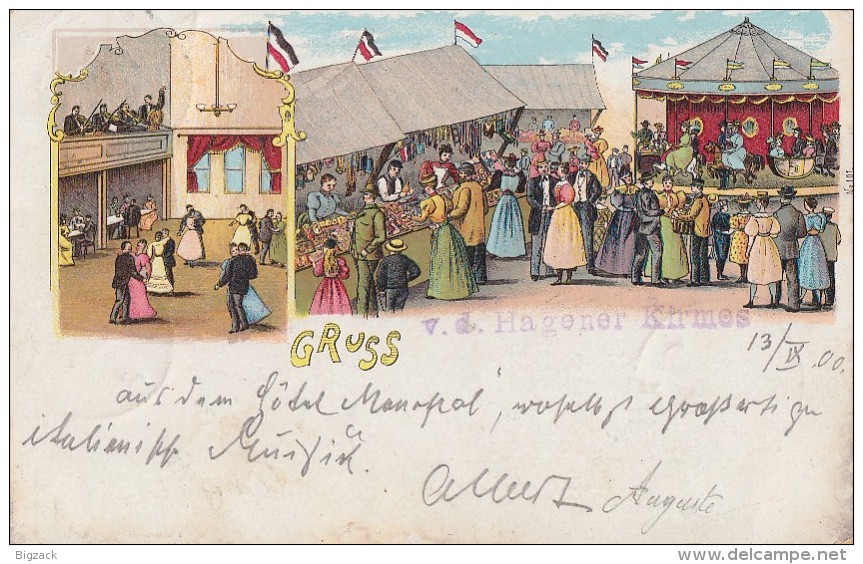 No 101
GRUSS
v. d. Hagener Kirmes
13/IX. 00.
aus dem Hôtel Monopol", woselbst großartige
italienisch Musik.
Albert Auguste
Bigzack
www.delcampe.net